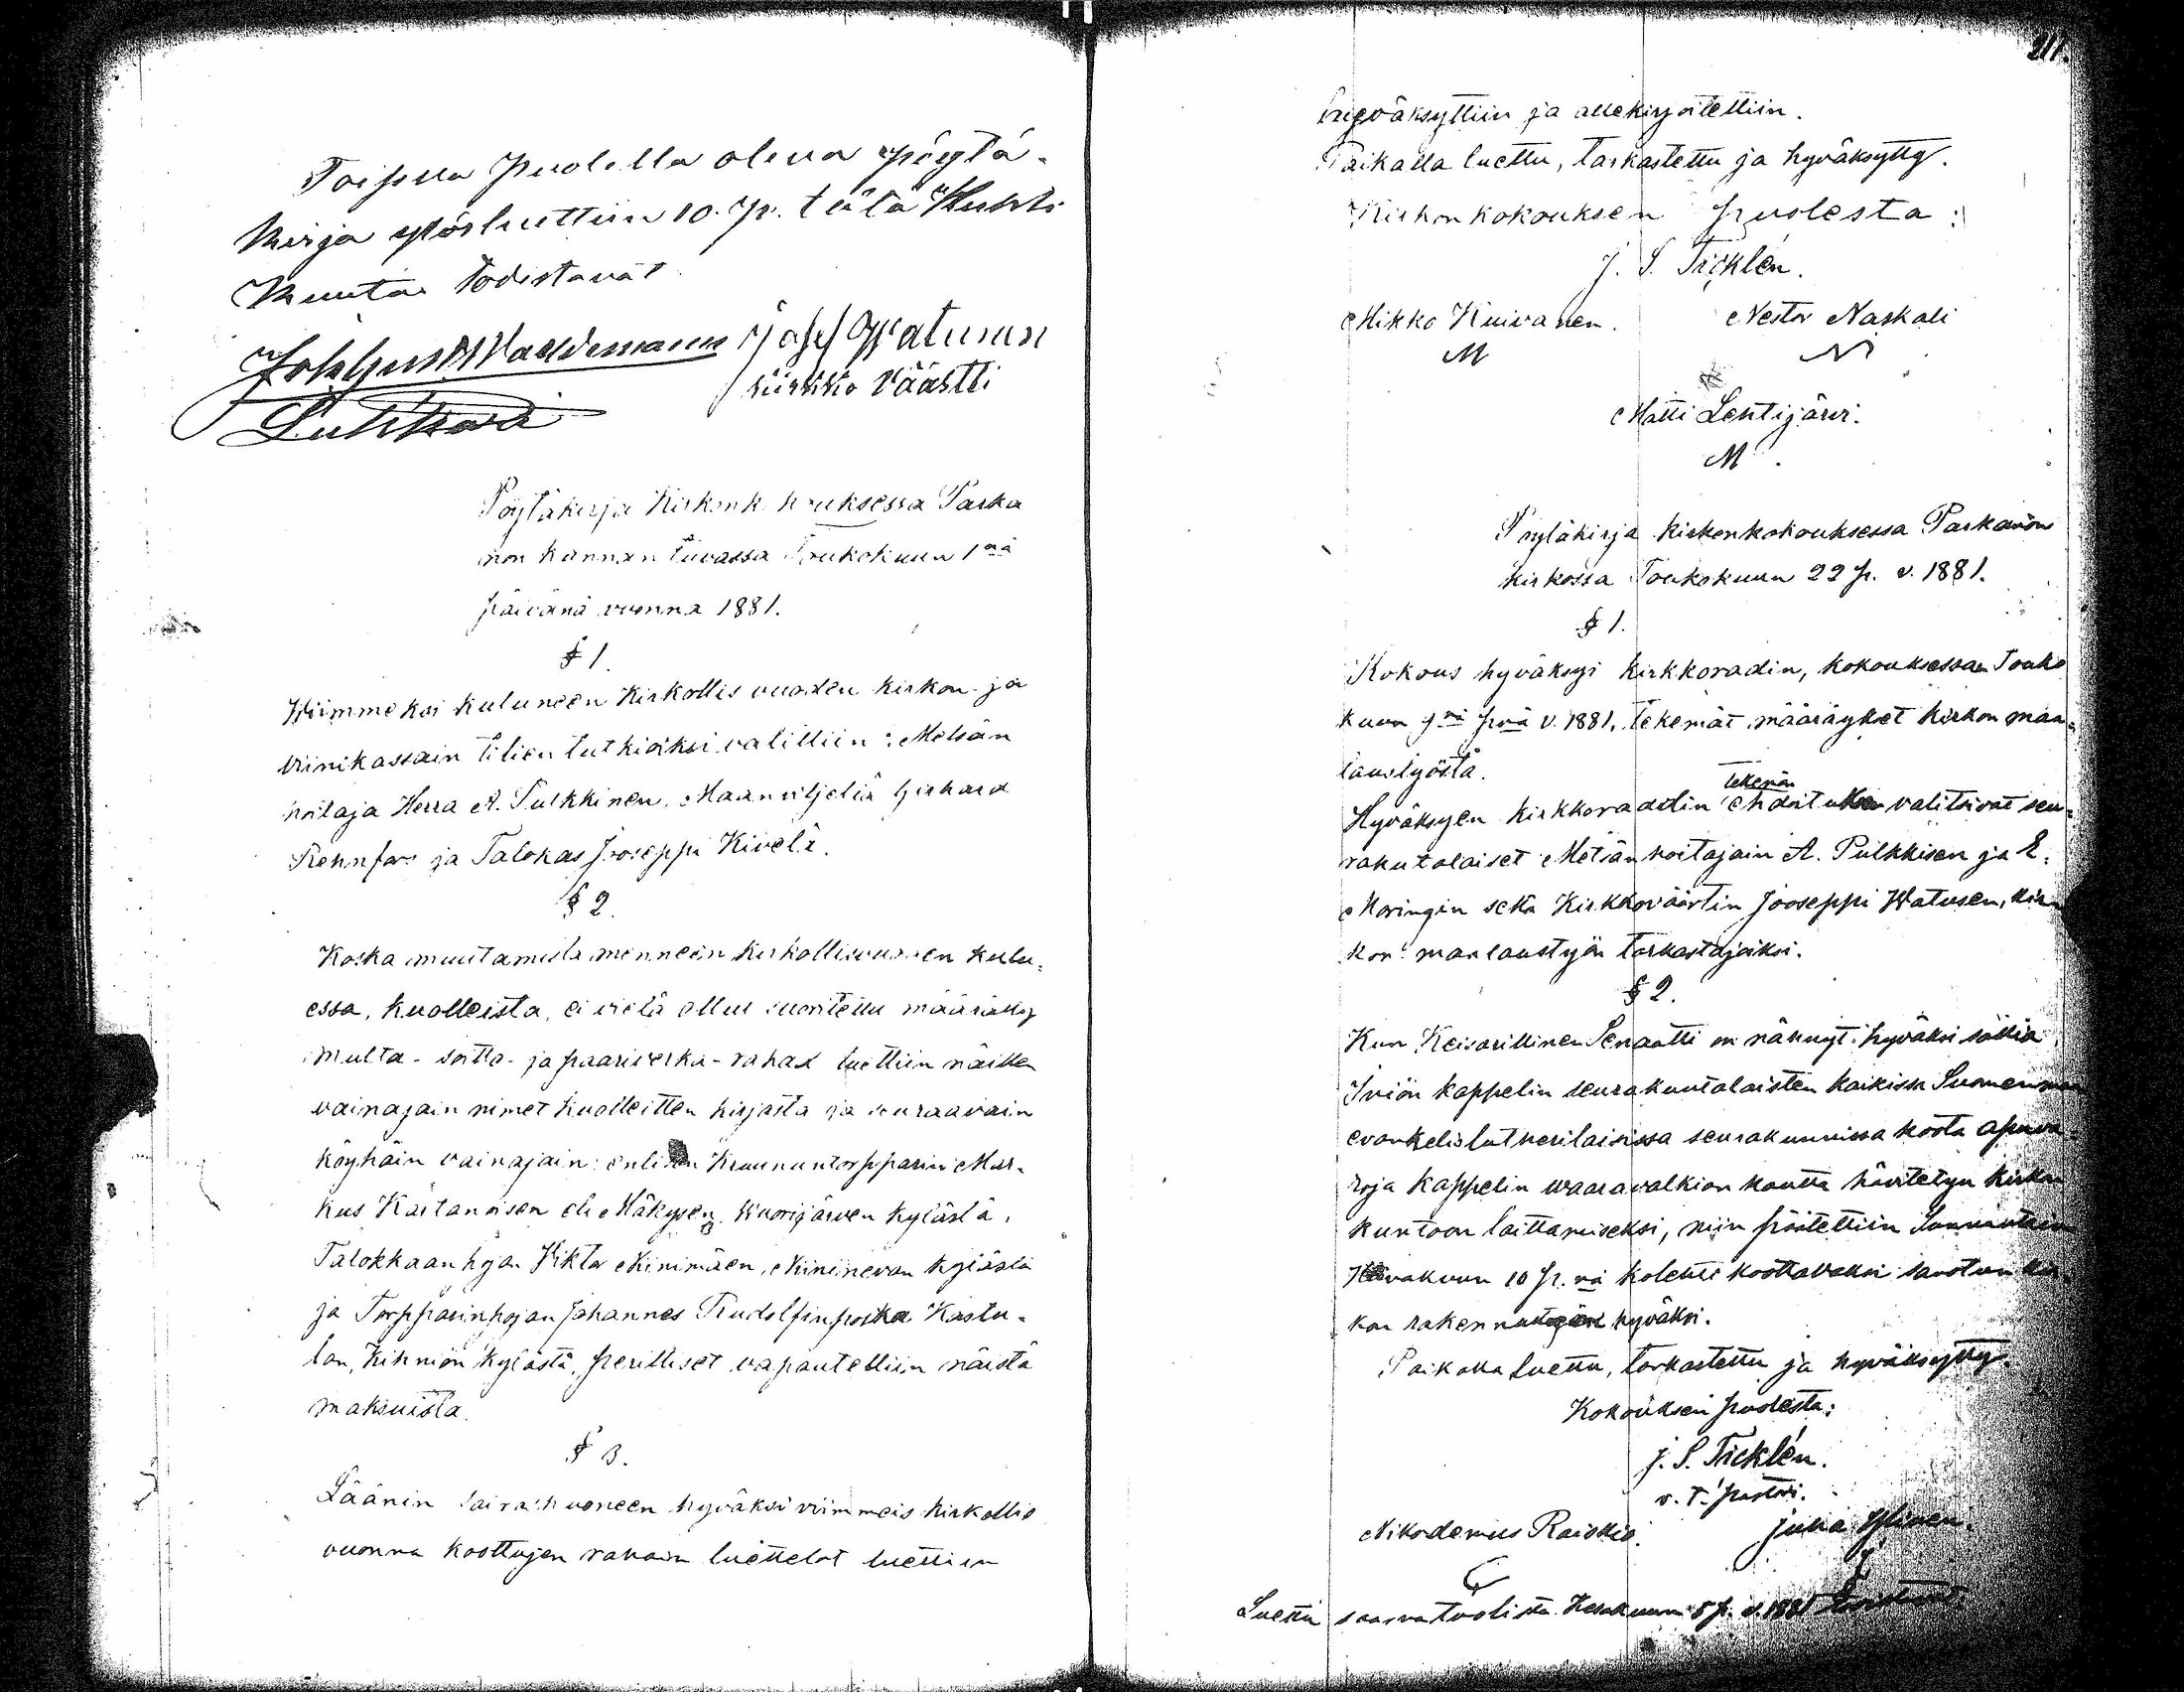 Toisella Puolella oleva pöytä-
kirja ylösluettiin 10. p. tätä Huhti
kuuta todistavat
Joh Gust Waldemann Josef Watunen
Lukkari kirkko väästti
Pöytäkirja Kirkonkokouksessa Parka
non kunnan tuvassa Toukokuun 1nä
päivänä vuonna 1881.
§ 1.
Wiimmeksi kuluneen Kirkollis vuoden kirkon- ja
viinikassain tilien tutkiaksi valittiin: Metsän
hoitaja Herra A. Pulkkinen, Maanviljeliä Gerhard
Rennfors ja Talokas Jooseppi Kivelä.
§ 2.
Koska muutamista menneen kirkollisvuoden kulu-
essa, kuolleista, ei vielä ollut suoritettu määrätty
multa- soitto- ja paariverka-rahat luettiin näitten
vainajain nimet kuolleitten kirjasta ja seuraavain
köyhäin vainajain: entisen Kruununtorpparin Mar-
kus Kaitamoisen eli Mäkysen, Wuorijärven kylästä,
Talokkaan pojan Viktor Niinimäen, Niininevan kylästä
ja Torpparinpojan Johannes Rudolfinpoika Kastu-
lan, Kihniön kylästä, perilliset vapautettiin näistä
maksuista.
§ 3.
Läänin sairashuoneen hyväksi viimmeis kirkollis
vuonna koottujen rahain luettelot luettiin
211.
hyväksyttiin ja allekirjoitettiin.
Paikalla luettu, tarkastettu ja hyväksytty.
Kirkonkokouksen puolesta:
J. S. Ticklén.
Mikko Kuivanen. Nestor Naskali
M N
Matti Lentijärvi.
M.
Pöytäkirja kirkonkokouksessa Parkanon
kirkossa Toukokuun 22 p. v. 1881.
§ 1.
Kokous hyväksyi kirkkoradin, kokouksessaan Touko
kuun 9nä pnä v. 1881, tekemät määräykset kirkon maa-
laustyöstä.
Hyväksyen kirkkoraadin tekemän ehdoituksen valitsivat seu-
rakuntalaiset Metsänhoitajain A. Pulkkisen ja E.
Moringin sekä Kirkkoväärtin Jooseppi Watusen, kir-
kon maalaustyön tarkastajaksi.
§ 2.
Kun Keisarillinen Senaatti on nähnyt hyväksi sallia
kappelin seurakuntalaisten kaikissa Suomenmaan
evankelislutherilaisissa seurakunnissa koota apuva-
roja kappelin waaravalkian kautta hävitetyn kirkon
kuntoon laittamiseksi, niin päätettiin Sunnuntain
10 p.nä kolehti koottavaksi sanotun kir-
kon rakennustyön hyväksi.
Paikalla luettu, tarkastettu ja hyväksytty.
Kokouksen puolesta:
J. S. Ticklén.
v. t. pastori.
Nikodemus Raiskio. Juha Ylinen.
Luettu saarnatuolista Kesäkuun 5 p. v. 1881